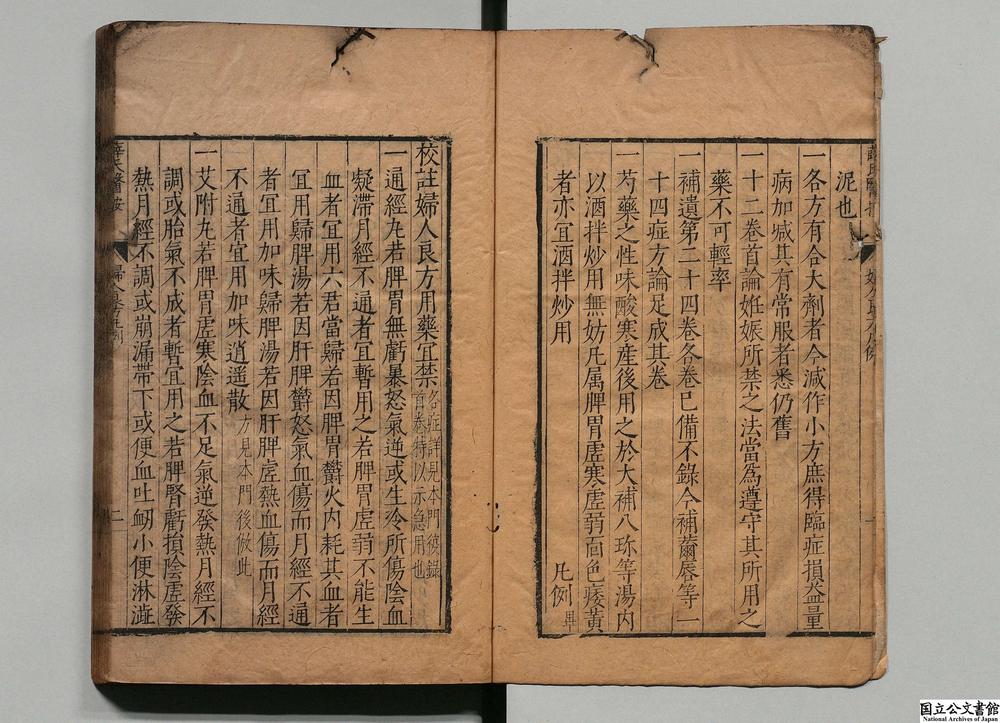 泥也
一各方有合大劑者今減作小方庶得臨症損益量
病加减其有常服者悉仍舊
一十二卷首論姙娠所禁之法當為遵守其所用之
藥不可輕率
一補遺第二十四卷各卷已備不錄今補薾唇等一
十四症方論足成其卷
一芍藥之性味酸寒産後用之於大補八珎等湯内
以酒拌炒用無妨凡属脾胃虗寒虗弱面色痿黄
者亦宜酒拌炒用
凡例畢
校註婦人良方用藥宜禁
各症詳見本門復錄
首卷特以示急用也
一通經丸若脾胃無虧暴怒氣逆或生冷所傷陰血
疑滞月經不通者宜暫用之若脾胃虗弱不能生
血者宜用六君當歸若因脾胃欝火内耗其血者
宜用歸脾湯若因肝脾欝怒氣血傷而月經不通
者宜用加味歸脾湯若因肝脾虗熱血傷而月經
不通者宜用加味逍遥散方見本門後倣此
一艾附丸若脾胃虗寒陰血不足氣逆發熱月經不
調或胎氣不成者暫宜用之若脾腎虧損陰虗發
熱月經不調或崩漏帶下或便血吐衂小便淋澁
薛氏醫按
二
国立公文書館
National Archives of Japan